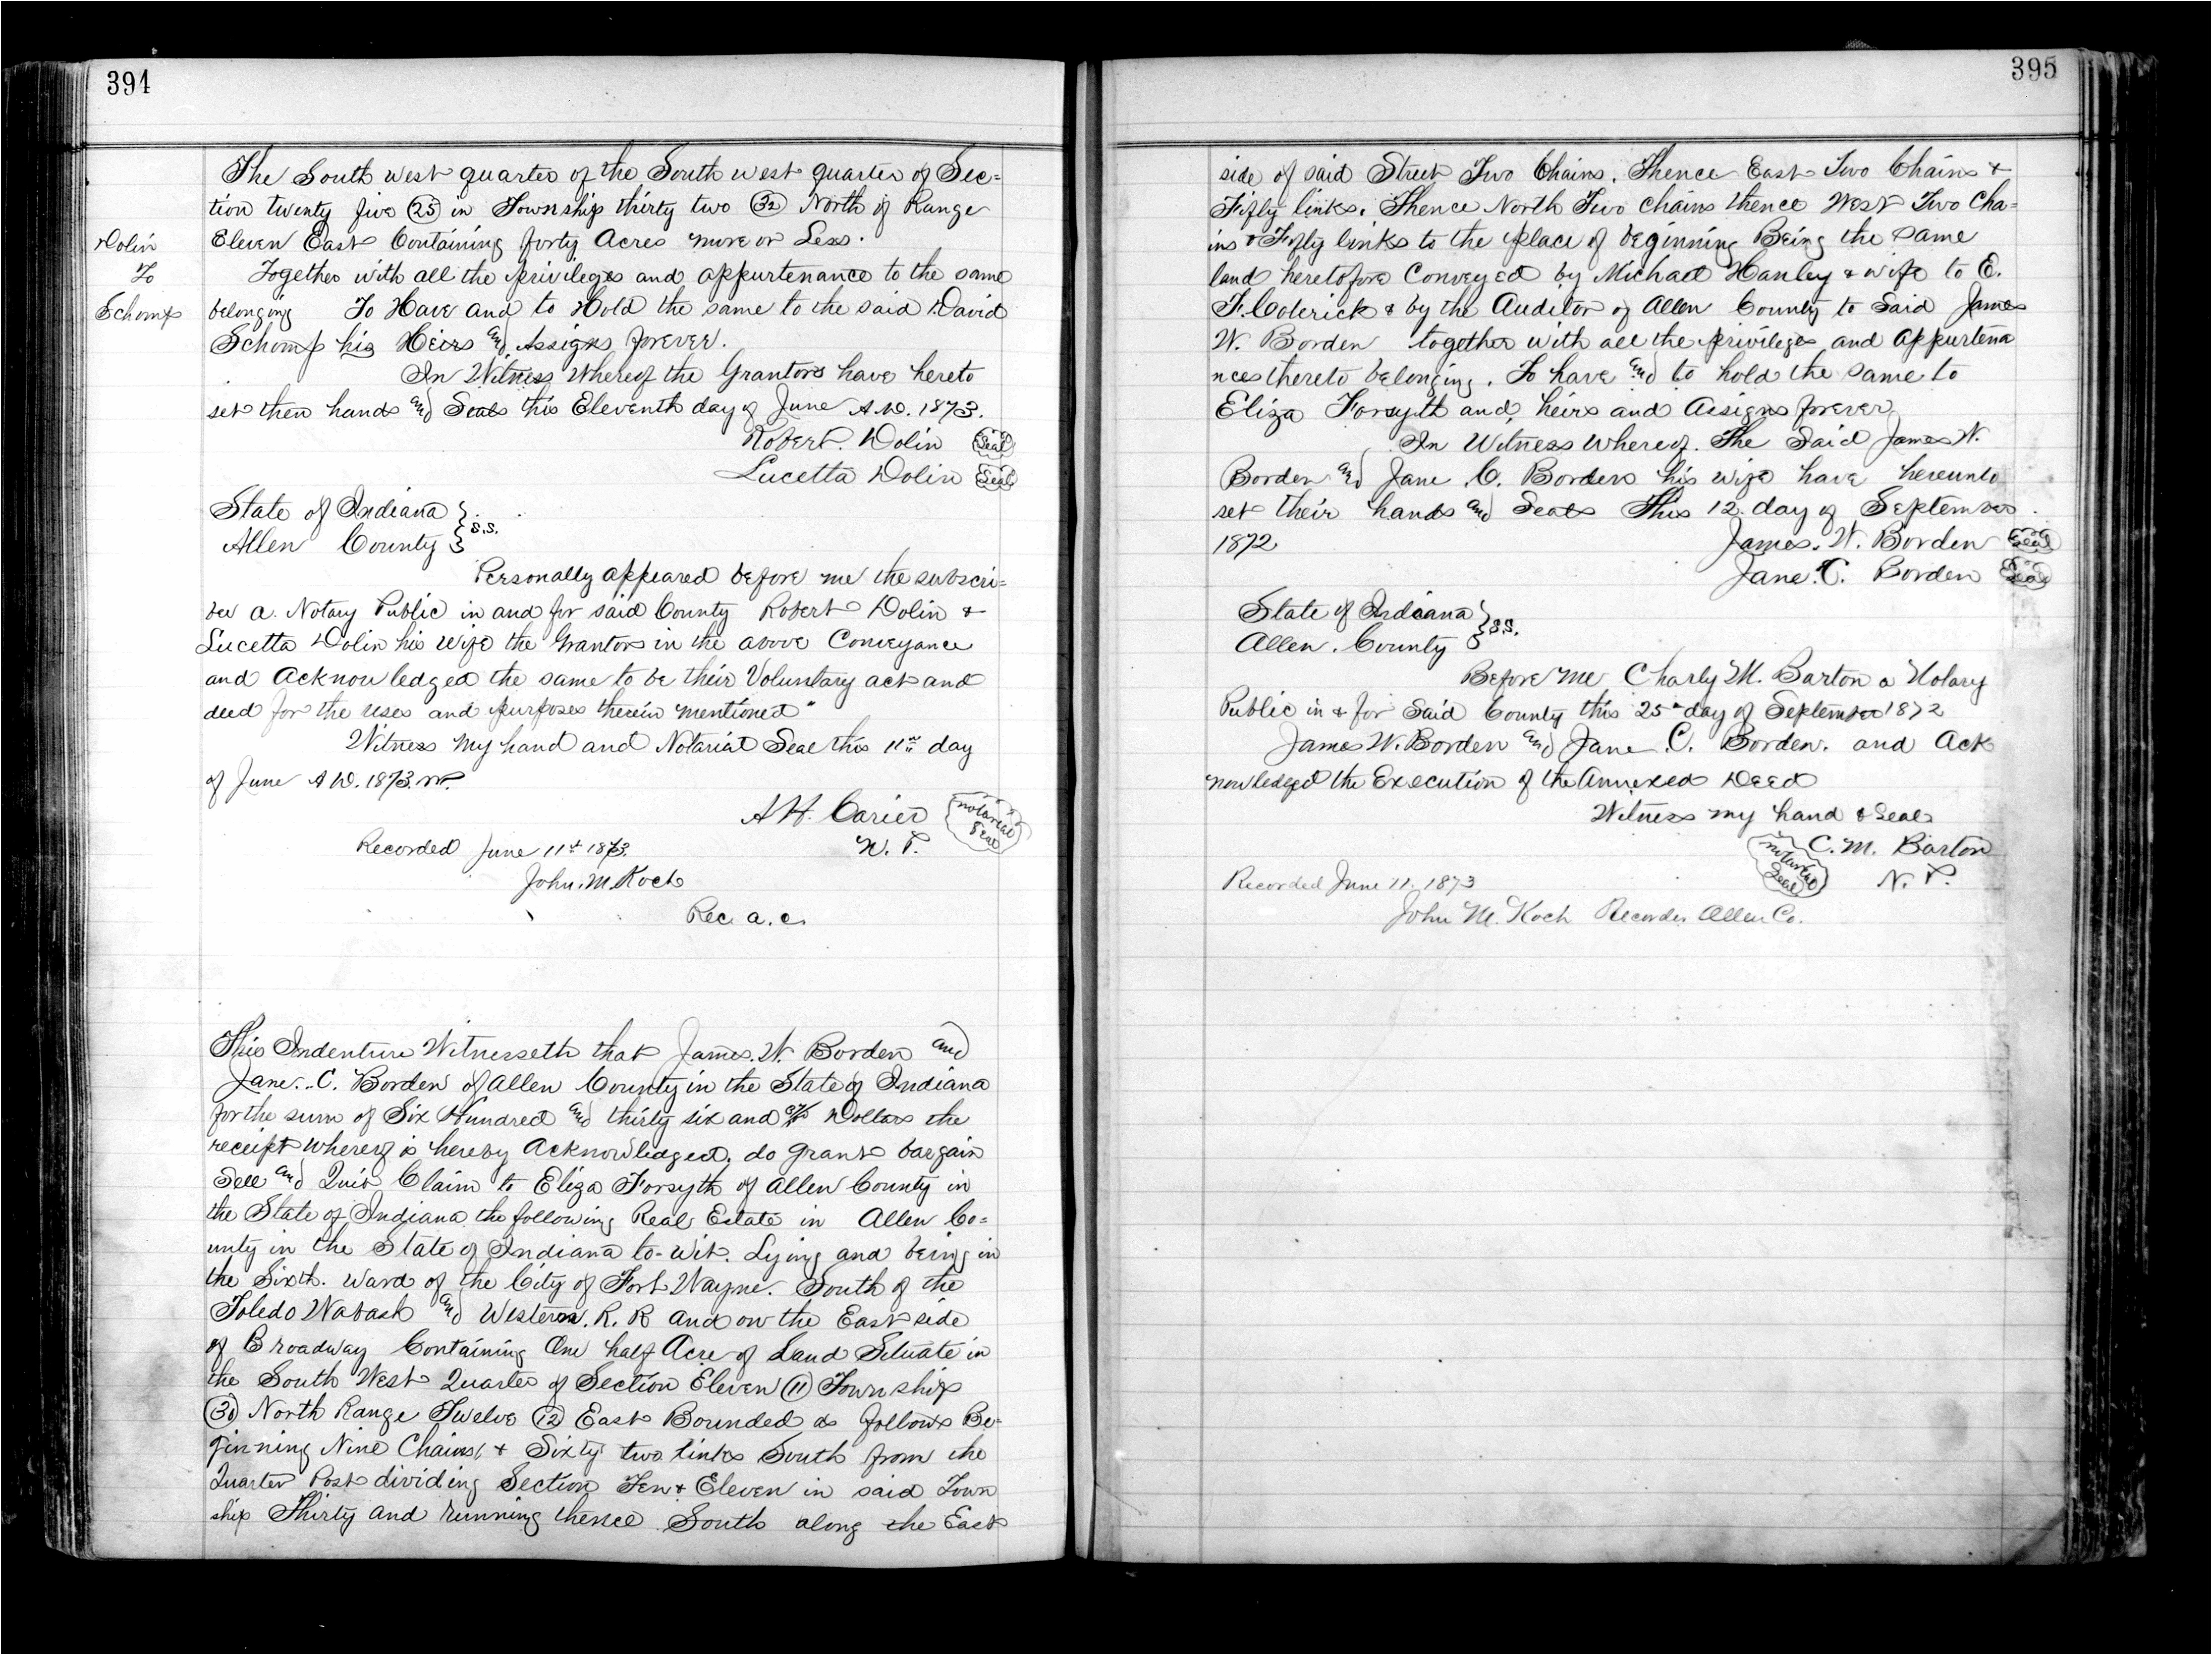 394
The South west quarter of the South west quarter of Sec=
tion twenty five (25) in Township thirty two (32) North of Range
Eleven East Containing forty Acres more or Less.
Dolin
To
Schomp
Together with all the privileges and appurtenance to the same
belonging To Have and to Hold the same to the said David
Schomp his Heirs and Assigns forever.
In Witness Whereof the Grantors have hereto
set then hands and Seals this Eleventh day of June A.D. 1873.
Robert. Dolin Seal
Lucetta Dolin Seal
State of Indiana } S.S.
Allen County }
Personally appeared before me the subscri=
ber a. Notary Public in and for said County Robert Dolin &
Lucetta Dolin his Wife the Grantors in the above Conveyance
and Acknowledged the same to be their Voluntary act and
deed for the uses and purposes therein mentioned"
Witness my hand and Notarial Seal this 11th day
of June A.D. 1873.
A H. Carier notarial Seal
N. P.
Recorded June 11th 1873.
John. M. Koch
Rec. a. c.
This Indenture Witnesseth that James. W. Borden and
Jane. C. Borden of Allen County in the State of Indiana
for the sum of Six Hundred and thirty six and Dollars the
receipt whereof is hereby Acknowledged. do grant bargain
Sell and Quit Claim to Eliza Forsyth of Allen County in
the State of Indiana the following Real Estate in Allen Co=
unty in the State of Indiana to-wit. Lying and being in
the Sixth. Ward of the City of Fort Wayne. South of the
Toledo Wabash and Western. R. R and on the East side
of Broadway Containing One half Acre of Land Situate in
the South West Quarter of Section Eleven (11) Township
(30) North Range Twelve (12) East Bounded as follows Be-
ginning Nine Chains, & Sixty two links South from the
Quarter Post dividing Section Ten & Eleven in said Town
ship Thirty and running thence South along the East
395
side of said Street Two Chains. Thence East Two Chains &
Fifty links. Thence North Two Chains thence West Two Cha=
ins & Fifty links to the place of beginning Being the same
land heretofore Conveyed by Michael Hanley & wife to E.
F. Colerick & by the Auditor of Allen County to Said James
W. Borden together with all the privileges and appurtena
nces thereto belonging. To have and to hold the same to
Eliza Forsyth and heirs and Assigns forever
In Witness whereof. The Said James W.
Borden and Jane C. Borden his wife have hereunto
set their hands and Seals This 12 day of September.
1872 James. W. Borden Seal
Jane. C. Borden Seal
State of Indiana } S.S.
Allen. County }
Before Me Charly M. Barton a Notary
Public in & for Said County this 25th day of September 1872
James W. Borden and Jane C. Borden. and Ack
nowledged the Execution of the Annexed Deed
Witness my hand & Seal
notarial Seal C. M. Barton
N. P.
Recorded June 11. 1873
John M. Koch Recorder Allen Co.